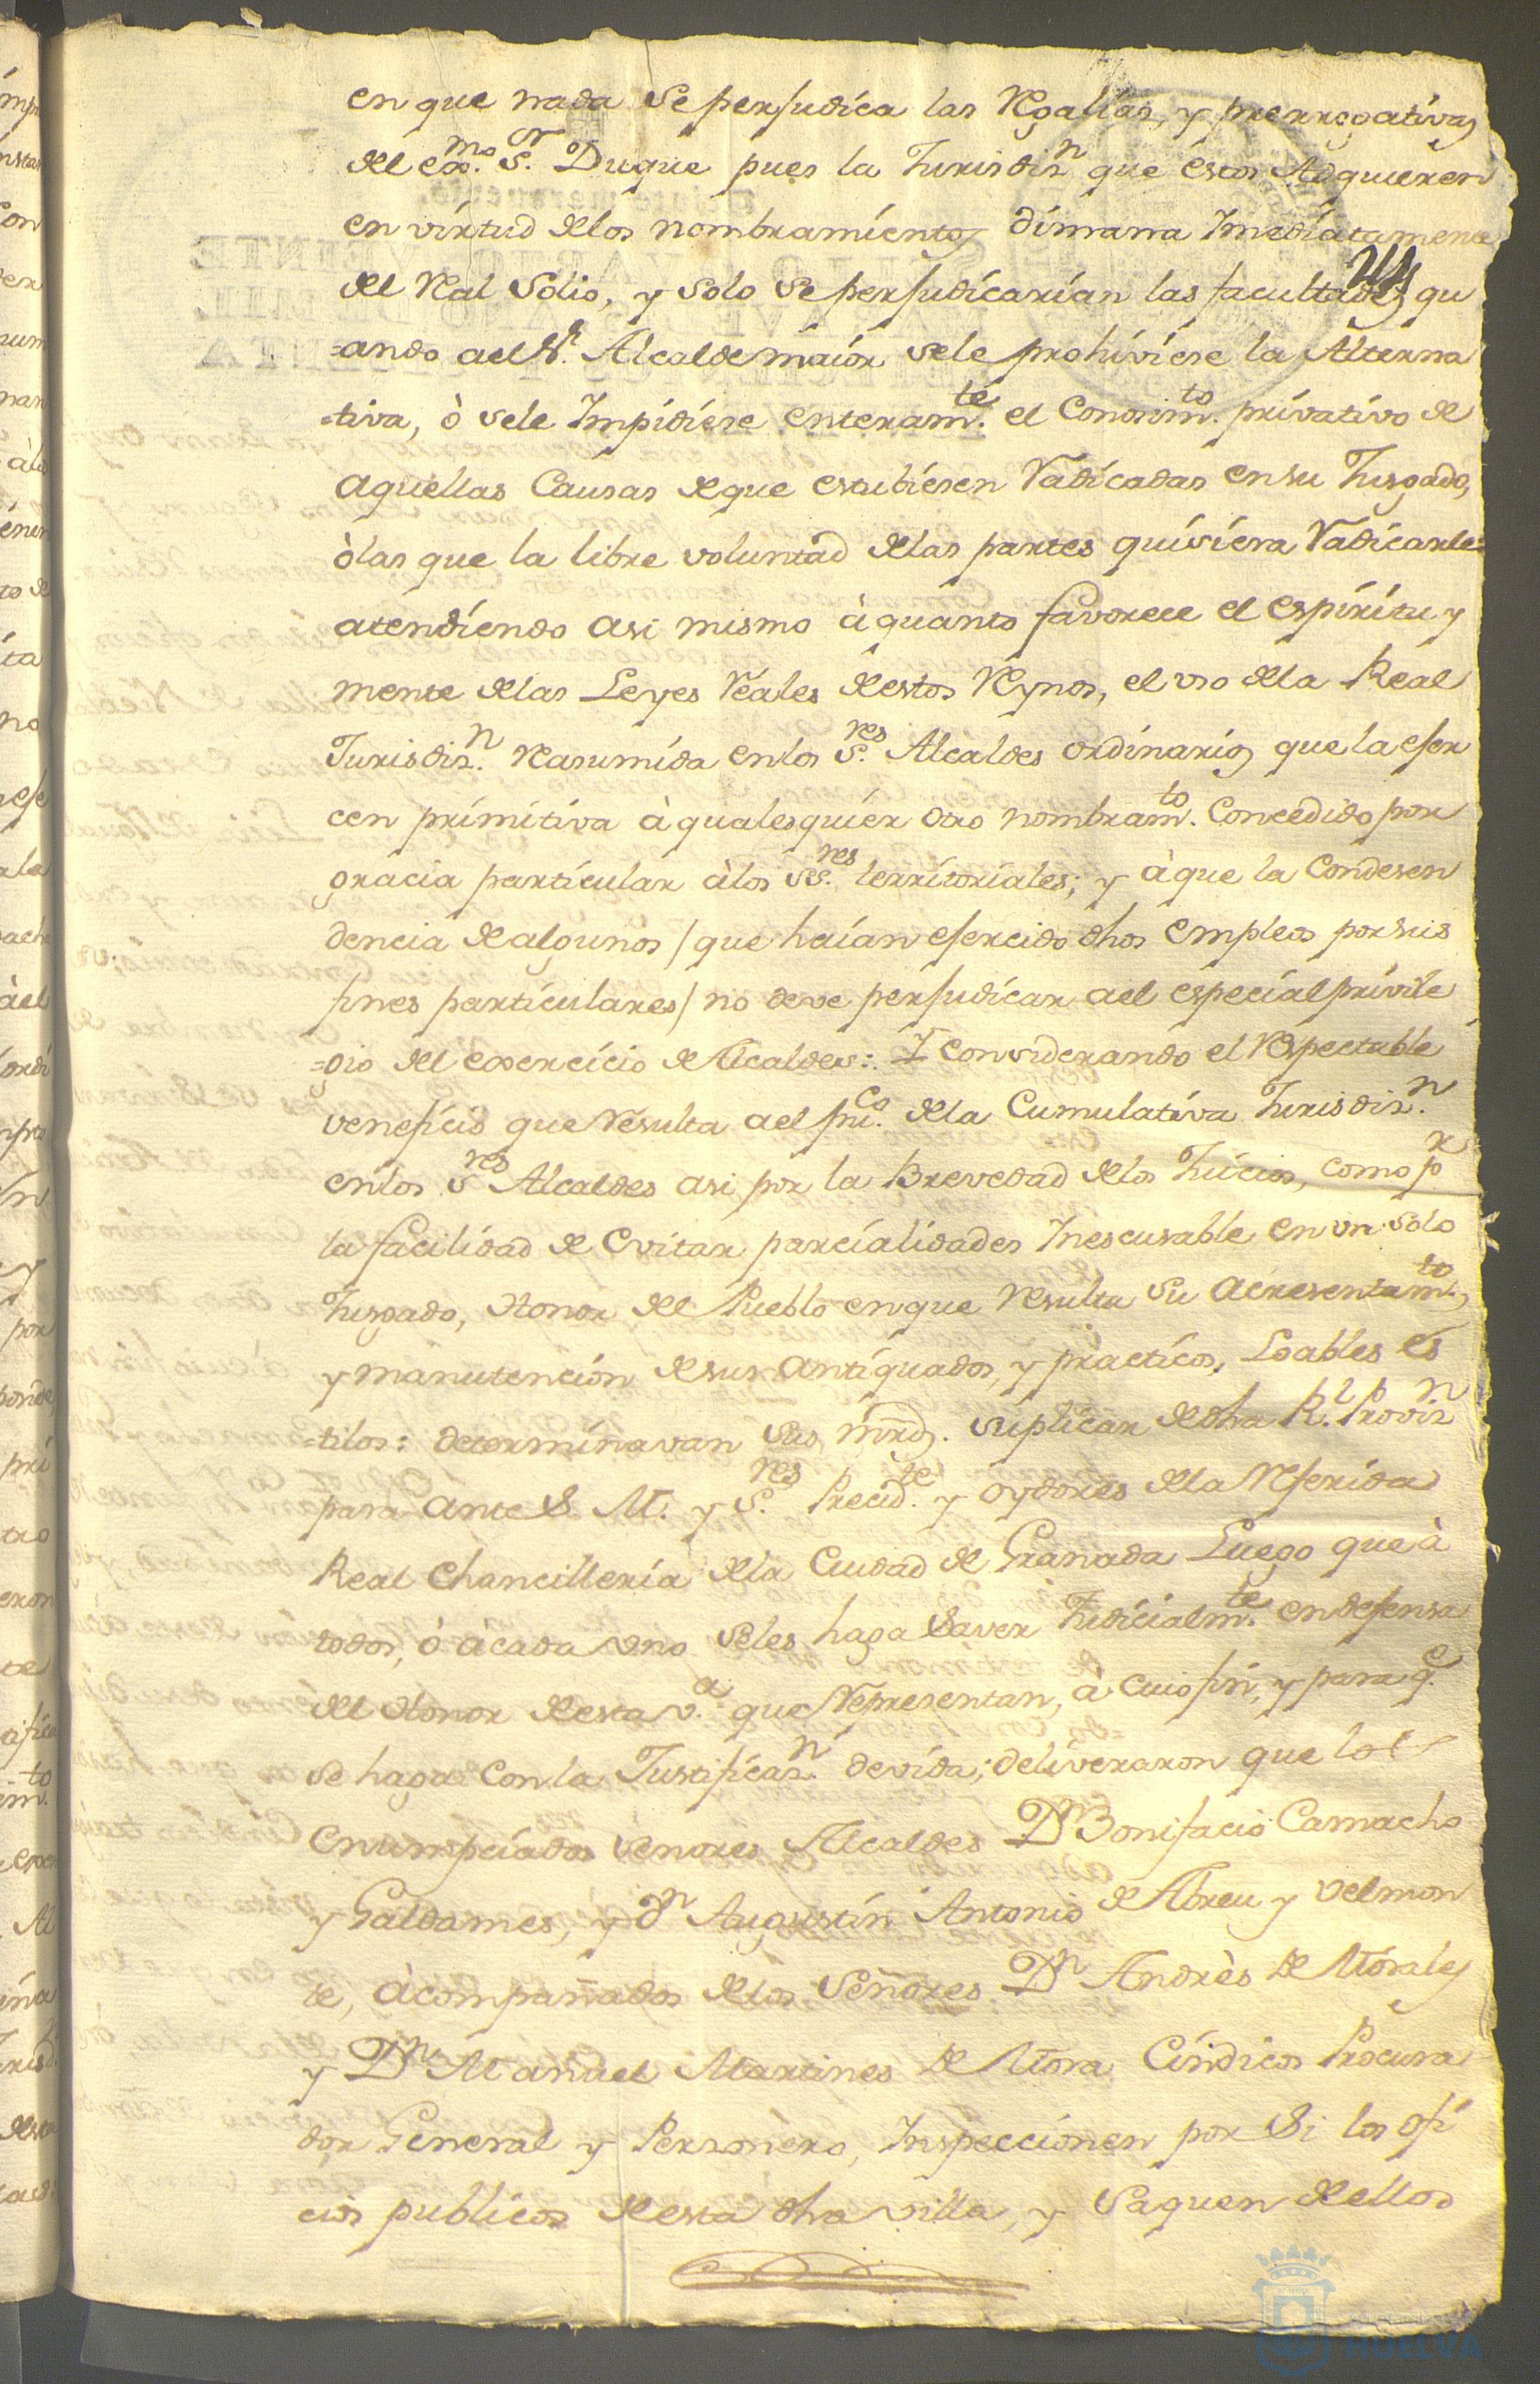 en que nada se perjudica las Regalias, y prerrogativas
del ex.mo S.or Duque pues la Jurisdiz.n que estos Adquieren
en virtud delos nombramientos dimana Imediatamente
24
del Real Solio, y solo se perjudicarían las facultades qu
=ando ael S.r Alcalde maior sele prohiviese la Alterna
=tiva, ò sele Impidiese enteram.te el Conosim.to privativo de
aquellas Causas deque estubiesen Radicadas en su Jusgado,
òlas que la libre voluntad delas partes quiviera Radicarle
atendiendo asi mismo à quanto favorece el espiritu y
mente delas Leyes Reales destos Reynos, el uso dela Real
Jurisdiz.n Reasumida enlos S.res Alcaldes ordinarios que la ejer
cen primitiva à qualesquier otro nombram.to Concedido por
gracia particular àlos SS.res territoriales; y àque la Condesen
dencia de algunos / que haian ejercido dhos empleos por sus
fines particulares / no deve perjudicar ael especial privile
=gio del exercicio de Alcaldes: Y considerando el Respectable
veneficio que Resulta ael pu.co dela Cumulativa Jurisdiz.n
enlos S.res Alcaldes asi por la Brevedad delos Juicios, como p.r
la facilidad de evitar parcialidades Inescusable en un solo
Jusgado, Honor del Pueblo enque Resulta su acresentam.to,
y manutencion desus antiguados, y practicos, Loables es
=tilos: determinavan sus mrds. suplicar de dha R.l Provis.n
para ante S. M. y S.res Precid.te y oydores dela Referida
Real Chancilleria dela Ciudad de Granada Luego que à
todos, ò àcada uno seles haga saver Judicialm.te en defensa
del Honor desta v.a que Representan, à cuio fin, y para q.e
se haga con la Justificaz.n devida; deliveraron que los
enumpciados señores Alcaldes D.n Bonifacio Camacho
y Galdames, y d.n Augustin Antonio de Abreu y Velmon
te, àcompañados delos Señores D.n Andrès de Morales
y D.n Manuel Martines de Mora Cindicos Procura
dor General y Personero, Inspeccionen por Si los ofi
cios publicos desta dha villa, y Saquen dellos
HUELVA